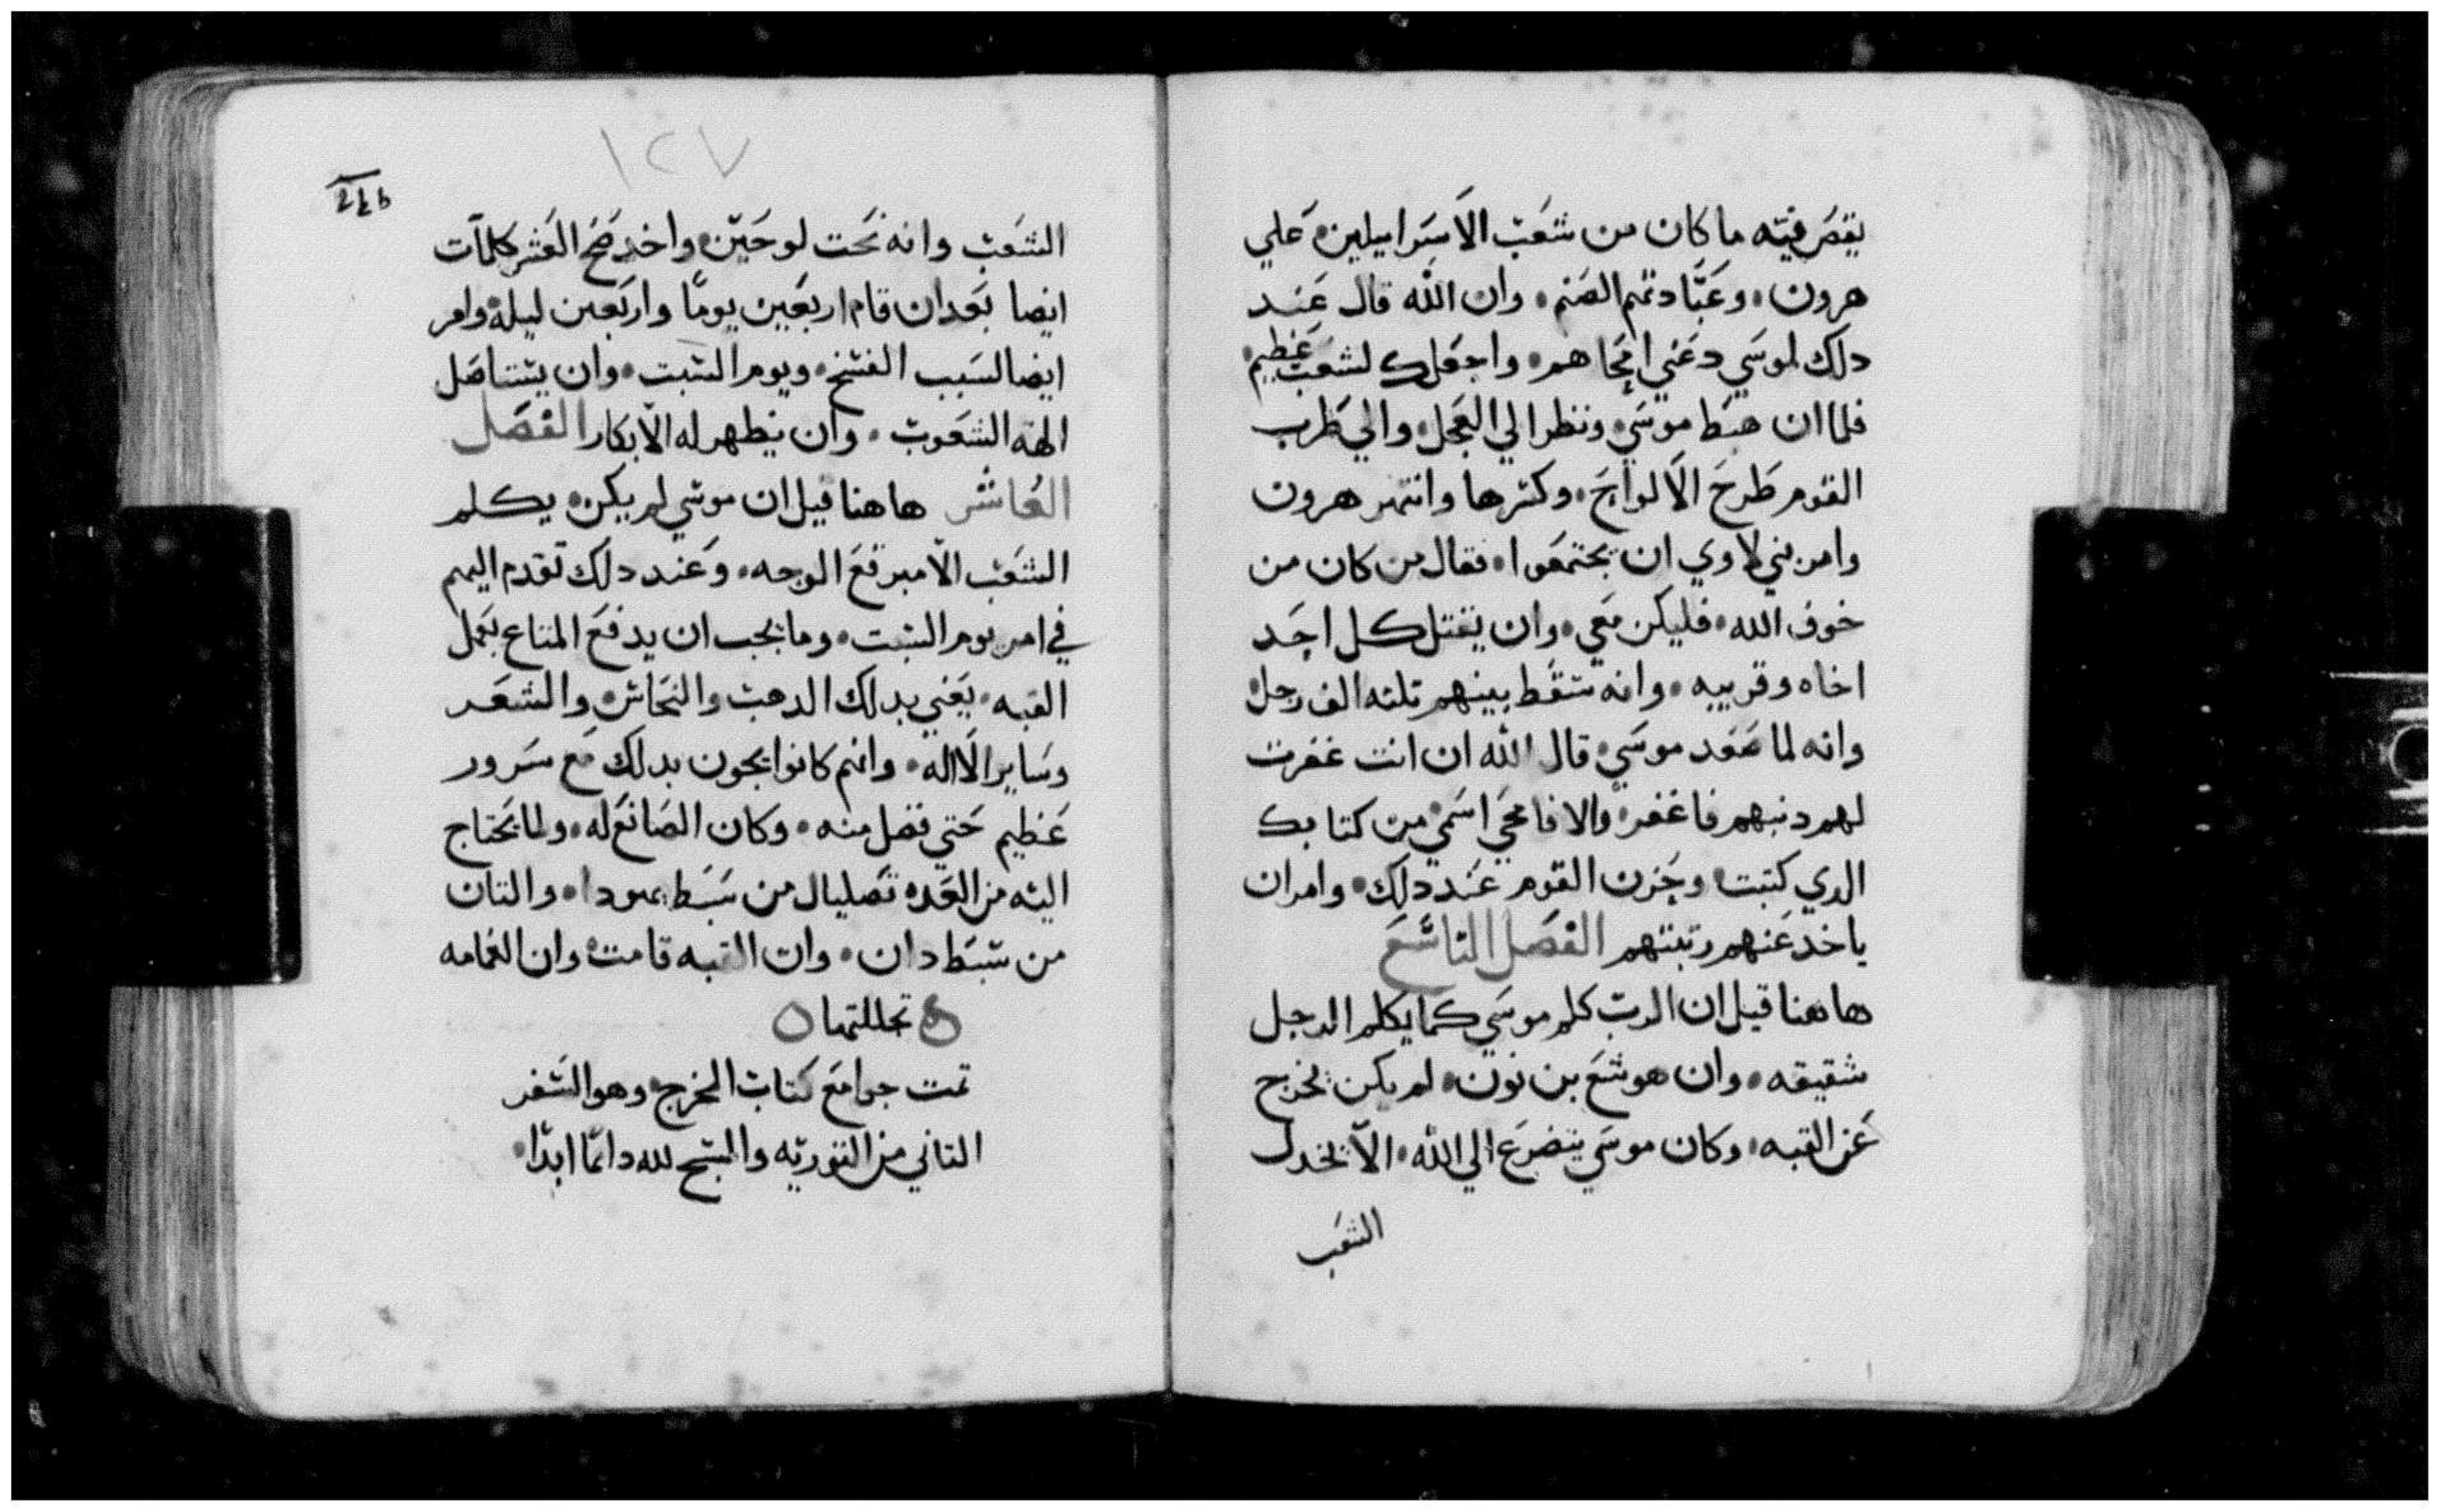 يقص فيه ما كان من شعب الاسراييلين علي
هرون، وعبادتهم الصنم، وان الله قال عند
دلك لموسي دعني امحاهم، واجعلك لشعب عظيم،
فلما ان هبط موسي، ونظر الي العجل، والي طرب
القوم طرح الالواح، وكسرها وانتهر هرون
وامر بني لاوي ان يجتمعوا، فقال من كان من
خوف الله، فليكن معي، وان يقتل كل احد
اخاه وقريبه، وانه سقط بينهم تلته الف رجل
وانه لما صعد موسي، قال الله ان انت غفرت
لهم دنبهم فاغفر، والا فامحي اسمي من كتابك
الدي كتبت، وحزن القوم عند دلك، وامر ان
ياخد عنهم زينتهم الفصل التاسع
هاهنا قيل ان الرب كلم موسي كما يكلم الرجل
شقيقه، وان هوشع بن نون، لم يكن يخرج
عن القبه، وكان موسي يتضرع الي الله، الا يخدل
الشعب
١٢٧
الشعب وانه نحت لوحين، واخد العشر كلمات
ايضا بعد ان قام اربعين يوما واربعين ليله، وامر
ايضا لسبب الفسح، ويوم السبت، وان يستاصل
الهة الشعوب، وان يطهر له الابكار الفصل
العاشر هاهنا قيل ان موسي لم يكن، يكلم
الشعب الا مبرقع الوجه، وعند دلك تقدم اليهم
في امر يوم السبت، وما يجب ان يدفع المتاع بعمل
القبه، يعني بدلك الدهب والنحاس، والشعر
وساير الااله، وانهم كانوا يجون بدلك مع سرور
عظيم حتي فضل منه، وكان الصانع له، ولما يحتاج
اليه من العده بصليال من سبط يهودا، والتان
من سبط دان، وان القبه قامت، وان الغمامه
ه تجللتها ه
تمت جوامع كتاب المخرج، وهو السفر
التاني من التوريه والسبح لله دائما ابدا،